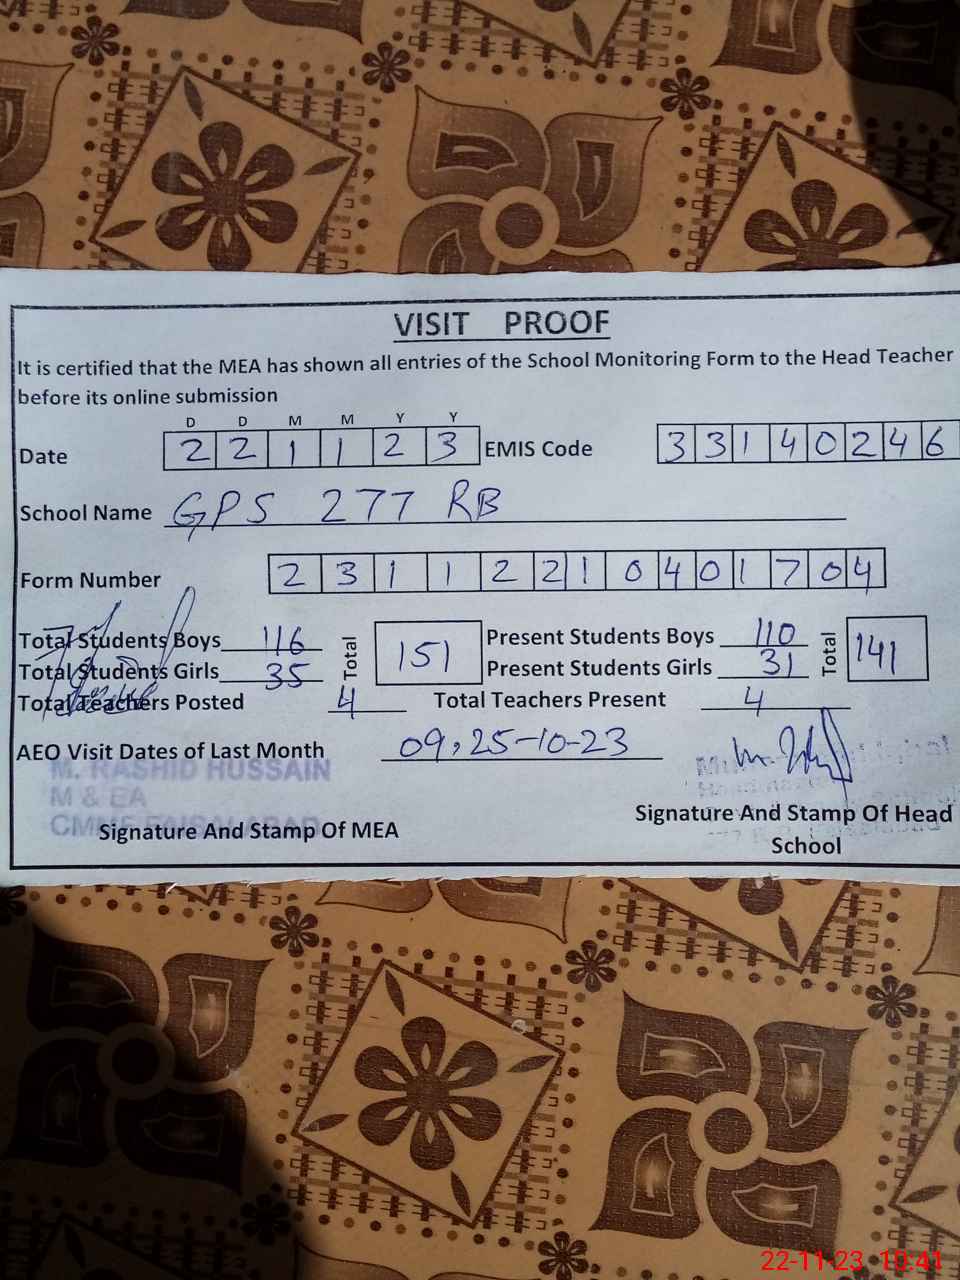 VISIT PROOF
It is certified that the MEA has shown all entries of the School Monitoring Form to the Head Teacher
before its online submission
D D M M Y Y
Date 2 2 1 1 2 3 EMIS Code 3 3 1 4 0 2 4 6
School Name GPS 277 RB
Form Number 2 3 1 1 2 2 1 0 4 0 1 7 0 4
Total Students Boys 116 Total 151 Present Students Boys 110 Total 141
Total Students Girls 35 Present Students Girls 31
Total Teachers Posted 4 Total Teachers Present 4
AEO Visit Dates of Last Month 09, 25-10-23
M. RASHID HUSSAIN
M & EA
CMMF FAISALABAD
Signature And Stamp Of MEA
Signature And Stamp Of Head
School
22-11-23 10:41